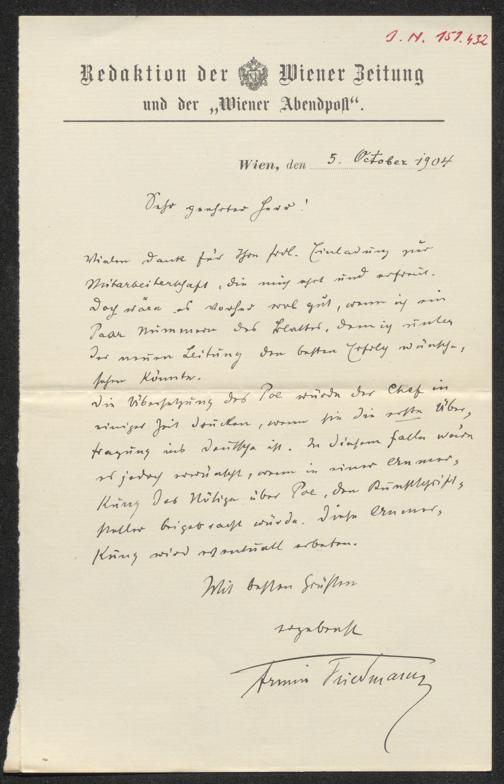 J. N. 151.432
Redaktion der Wiener Zeitung
und der „Wiener Abendpost“.
Wien, den 5. October 1904
Sehr geehrter Herr!
Vielen Dank für Ihre frdl. Einladung zur
Mitarbeiterschaft, die mich ehrt und erfreut.
Doch wäre es vorher wol gut, wenn ich ein
Paar Nummern des Blattes, dem ich unter
der neuen Leitung den besten Erfolg wünsche,
sehen könnte.
Die Übersetzung des Poe würde der Chef in
einiger Zeit drucken, wenn sie die erste Über,
tragung ins Deutsche ist. In diesem Falle wäre
es jedoch erwünscht, wenn in einer Anmer,
kung das Nötige über Poe, den Kunstschrift,
steller beigebracht würde. Diese Anmer,
kung wird eventuell erbeten.
Mit besten Grüßen
ergebenst
Armin Friedmann